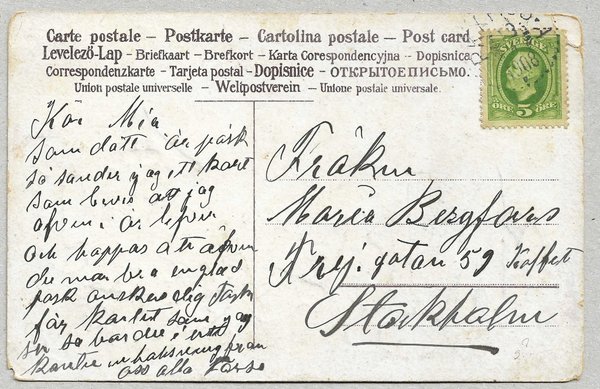 Carte postale – Postkarte – Cartolina postale – Post card.
Levelező-Lap – Briefkaart – Brefkort – Karta Corespondencyjna – Dopisnica
Correspondenzkarte – Tarjeta postal – Dopisnice – ОТКРЫТОЕ ПИСЬМО.
Union postale universelle – Weltpostverein – Unione postale universale.
SVERIGE
5
ÖRE ÖRE
Kär Mia
som dätt är påsk
så sander jag ett kort
som bevis att jag
äfven i år lefver
och hoppas att äfven
du mår bra
påsk
får kortet som jag
ser så
oss alla
Fröken
Maria Bergfors
Frejgatan 59
Stockholm